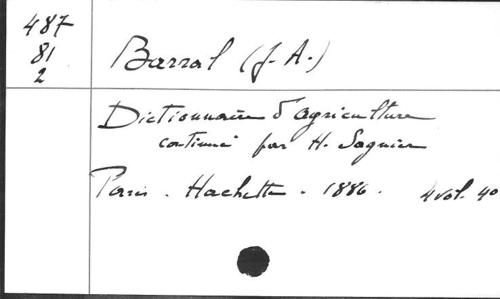 487
81
2
Barral (J. A.)
Dictionnaire d'agriculture
continué par H. Sagnier
Paris. Hachette. 1886. 4 vol. 4o